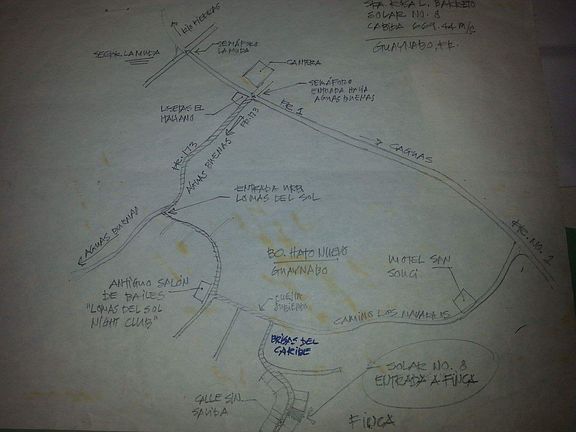 STA. ROSA L. BARRETO
SOLAR NO. 8
CABIDA 669.44 m/s
GUAYNABO, P.R.
RIO PIEDRAS
SECTOR LA MUDA
SEMÁFORO
LA MUDA
CANTERA
SEMÁFORO
ENTRADA HACIA
AGUAS BUENAS
LOSETAS EL
ITALIANO
PR. 1
PR. 173
PR. 173
AGUAS BUENAS
CAGUAS
ENTRADA URB.
LOMAS DEL SOL
AGUAS BUENAS
PR. NO. 2
BO. HATO NUEVO
GUAYNABO
MOTEL SAN
SOUCI
ANTIGUO SALÓN
DE BAILES
"LOMAS DEL SOL
NIGHT CLUB"
CUESTA
CAMINO LOS NAVARROS
BRISAS DEL
CARIBE
SOLAR NO. 8
ENTRADA A FINCA
CALLE SIN
SALIDA
FINCA